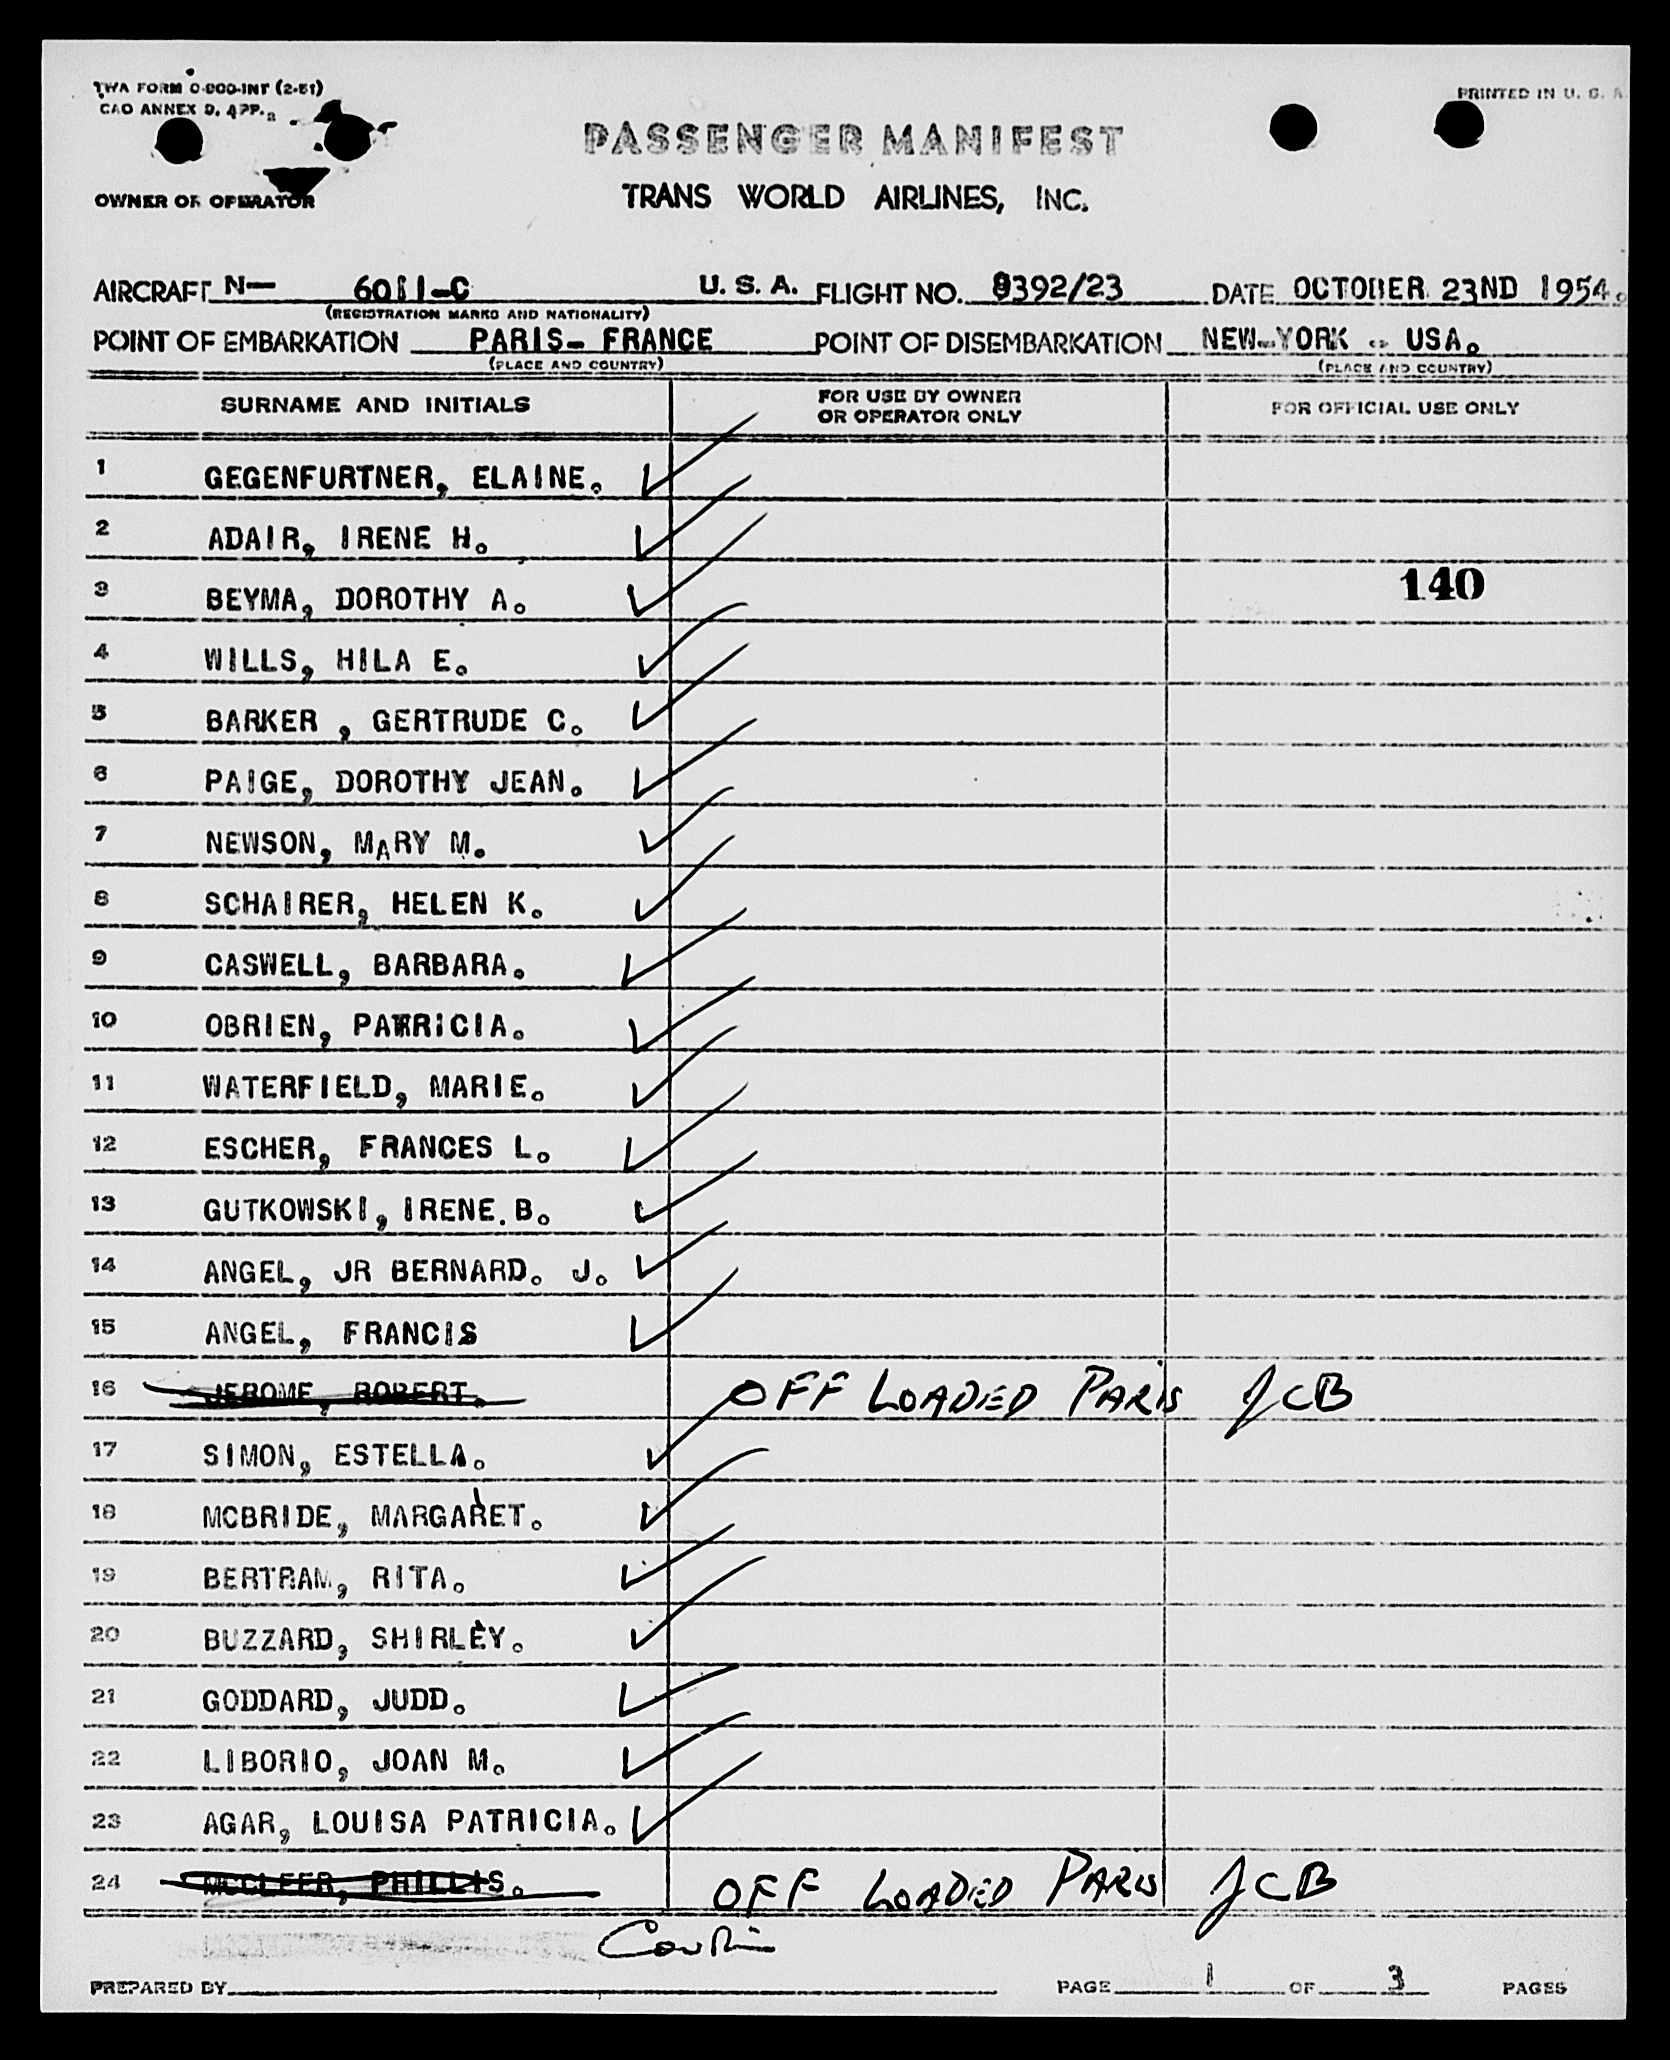 TWA FORM O-900-INT (2-51)
PRINTED IN U. S. A
CAO ANNEX 9, APP. 2
PASSENGER MANIFEST
OWNER OR OPERATOR
TRANS WORLD AIRLINES, INC.
AIRCRAFT N— 6011-C U. S. A. FLIGHT NO. 9392/23 DATE OCTOBER 23ND 1954.
(REGISTRATION MARKS AND NATIONALITY)
POINT OF EMBARKATION PARIS- FRANCE POINT OF DISEMBARKATION NEW-YORK - USA.
(PLACE AND COUNTRY) (PLACE AND COUNTRY)
SURNAME AND INITIALS FOR USE BY OWNER OR OPERATOR ONLY FOR OFFICIAL USE ONLY
1 GEGENFURTNER, ELAINE.
2 ADAIR, IRENE H.
3 BEYMA, DOROTHY A. 140
4 WILLS, HILA E.
5 BARKER , GERTRUDE C.
6 PAIGE, DOROTHY JEAN.
7 NEWSON, MARY M.
8 SCHAIRER, HELEN K.
9 CASWELL, BARBARA.
10 OBRIEN, PATRICIA.
11 WATERFIELD, MARIE.
12 ESCHER, FRANCES L.
13 GUTKOWSKI, IRENE. B.
14 ANGEL, JR BERNARD. J.
15 ANGEL, FRANCIS
16 JEROME, ROBERT. OFF LOADED PARIS JCB
17 SIMON, ESTELLA.
18 MCBRIDE, MARGARET.
19 BERTRAM, RITA.
20 BUZZARD, SHIRLEY.
21 GODDARD, JUDD.
22 LIBORIO, JOAN M.
23 AGAR, LOUISA PATRICIA.
24 MCCLEER, PHILLIS. OFF LOADED PARIS JCB
PREPARED BY PAGE 1 OF 3 PAGES